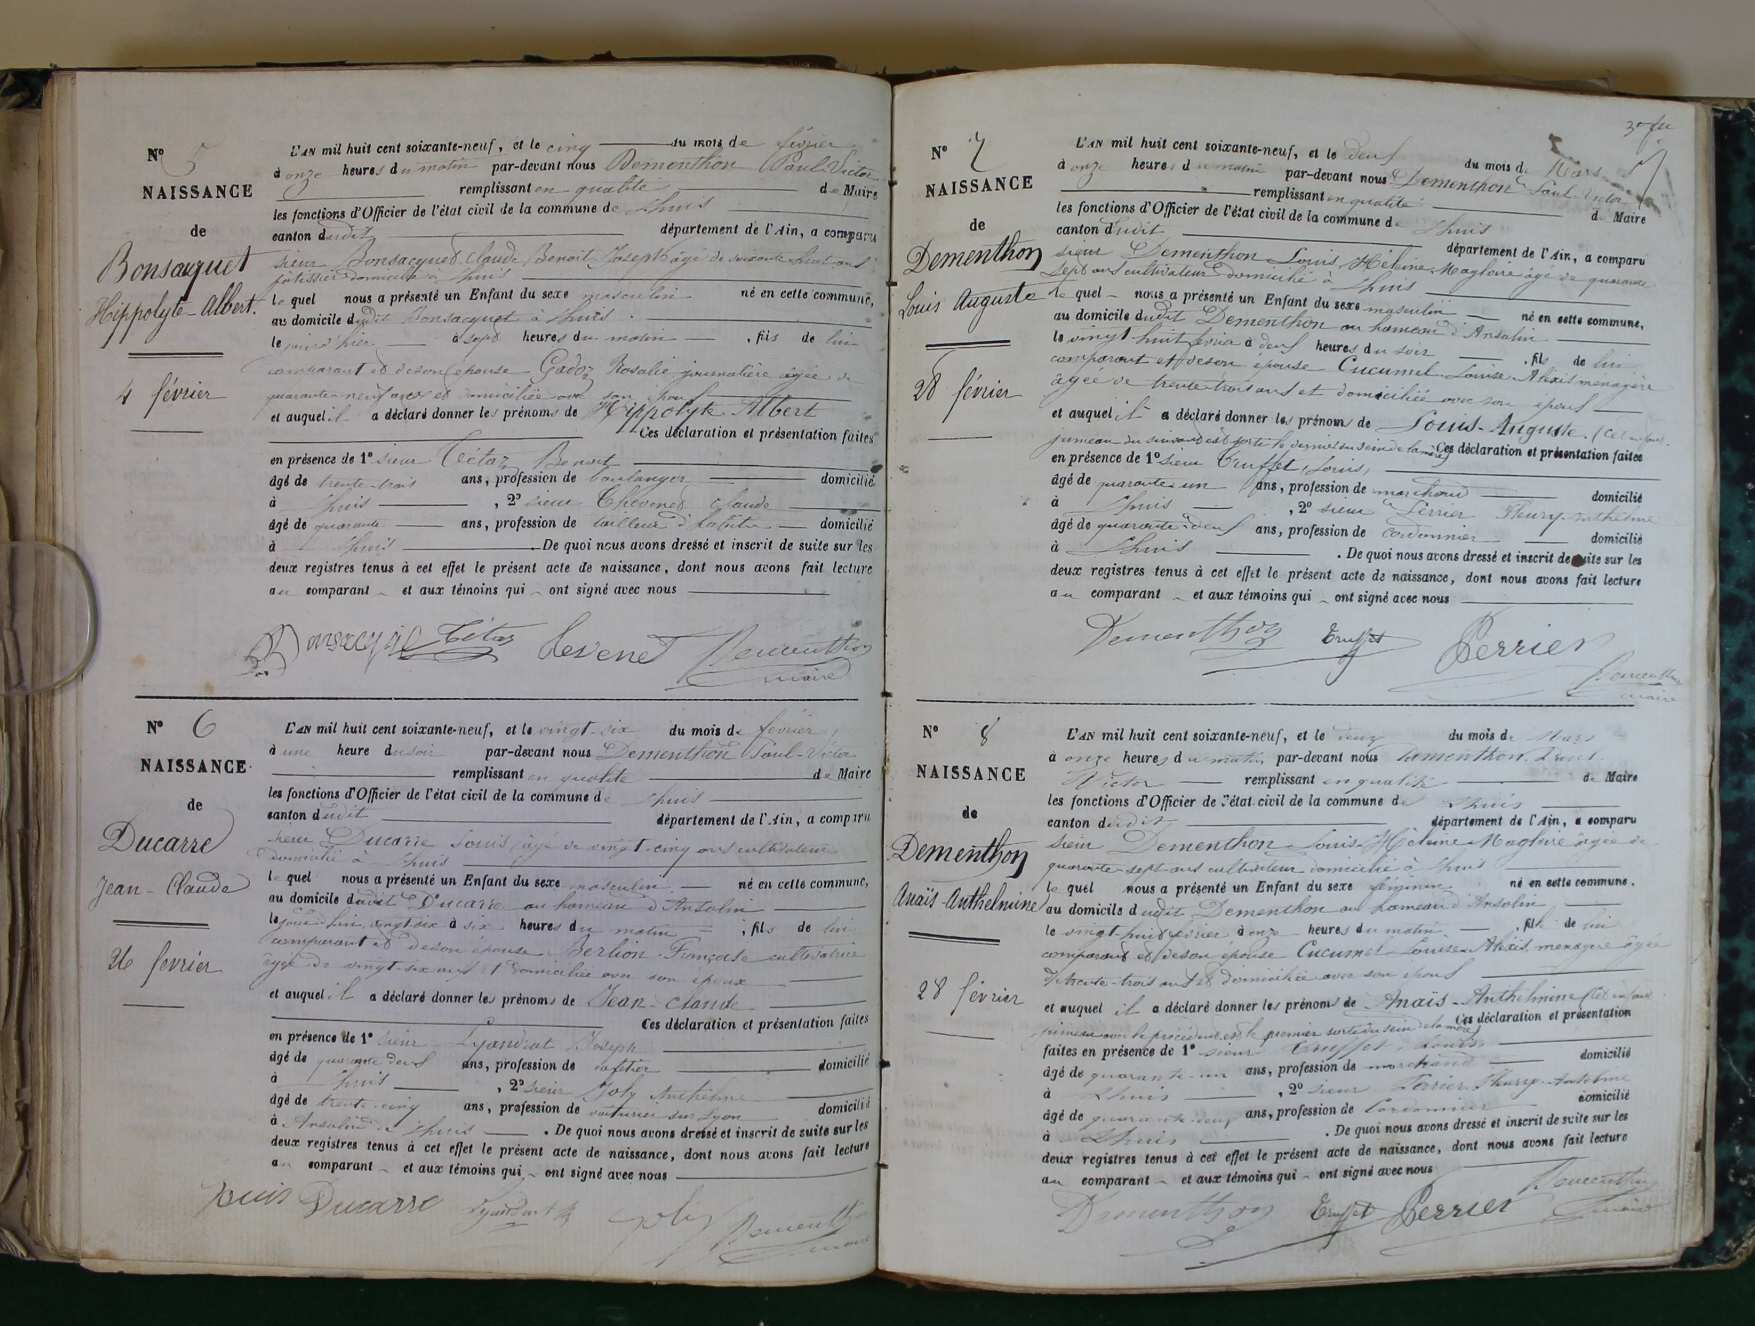 N° 5
NAISSANCE
de
Bonsacquet
Hippolyte-Albert.
4 février
L'AN mil huit cent soixante-neuf, et le cinq du mois de février
à onze heures du matin par-devant nous Dementhon Paul-Victor
remplissant en qualité de Maire
les fonctions d'Officier de l'état civil de la commune de Lhuis
canton dudit département de l'Ain, a comparu
sieur Bonsacquet Claude Benoit Joseph âgé de soixante huit ans
pâtissier domicilié à Lhuis
le quel nous a présenté un Enfant du sexe masculin né en cette commune,
au domicile dudit Bonsacquet à Lhuis.
le jour d'hier à sept heures du matin, fils de lui
comparant et de son épouse Gadoz Rosalie journalière âgée de
quarante-neuf ans et domiciliée avec son époux
et auquel il a déclaré donner les prénoms de Hippolyte Albert
Ces déclaration et présentation faites
en présence de 1° sieur Tétaz Benoit
âgé de trente-trois ans, profession de boulanger domicilié
à Lhuis, 2° sieur Thevenet Claude
âgé de quarante ans, profession de tailleur d'habits domicilié
à Lhuis. De quoi nous avons dressé et inscrit de suite sur les
deux registres tenus à cet effet le présent acte de naissance, dont nous avons fait lecture
au comparant et aux témoins qui ont signé avec nous
Tétaz Dementhon
maire
N° 6
NAISSANCE
de
Ducarre
Jean-Claude
26 février
L'AN mil huit cent soixante-neuf, et le vingt-six du mois de février,
à une heure du soir par-devant nous Dementhon Paul-Victor
remplissant en qualité de Maire
les fonctions d'Officier de l'état civil de la commune de Lhuis
canton dudit département de l'Ain, a comparu
sieur Ducarre Louis âgé de vingt-cinq ans cultivateur
domicilié à Lhuis
le quel nous a présenté un Enfant du sexe masculin né en cette commune,
au domicile dudit Ducarre au hameau d'Ansolin
le vingt-six à six heures du matin, fils de lui
comparant et de son épouse Berlion Françoise cultivatrice
âgée de vingt-six ans et domiciliée avec son époux
et auquel il a déclaré donner les prénoms de Jean-Claude
Ces déclaration et présentation faites
en présence de 1° sieur Lyandrat Joseph
âgé de quarante deux ans, profession de cafetier domicilié
à Lhuis, 2° sieur Joly Anthelme
âgé de trente-cinq ans, profession de voiturier sur Lyon domicilié
à Ansolin Lhuis. De quoi nous avons dressé et inscrit de suite sur les
deux registres tenus à cet effet le présent acte de naissance, dont nous avons fait lecture
au comparant et aux témoins qui ont signé avec nous
Louis Ducarre Lyandrat J Joly Dementhon
maire
N° 7
NAISSANCE
de
Dementhon
Louis Auguste
28 février
L'AN mil huit cent soixante-neuf, et le deux du mois de Mars
à onze heures du matin par-devant nous Dementhon Paul-Victor
remplissant en qualité de Maire
les fonctions d'Officier de l'état civil de la commune de Lhuis
canton dudit département de l'Ain, a comparu
sieur Dementhon Louis-Hélène-Magloire âgé de quarante
sept ans cultivateur domicilié à Lhuis
le quel nous a présenté un Enfant du sexe masculin né en cette commune,
au domicile dudit Dementhon au hameau d'Ansolin
le vingt huit février à deux heures du soir, fils de lui
comparant et de son épouse Cucumel Louise-Alexis ménagère
âgée de trente-trois ans et domiciliée avec son époux
et auquel il a déclaré donner les prénoms de Louis-Auguste. (Cet enfant
jumeau du suivant est sorti le dernier du sein de la mère) Ces déclaration et présentation faites
en présence de 1° sieur Truffet Louis,
âgé de quarante-un ans, profession de marchand domicilié
à Lhuis, 2° sieur Perrier Fleury-Anthelme
âgé de quarante-deux ans, profession de cordonnier domicilié
à Lhuis. De quoi nous avons dressé et inscrit de suite sur les
deux registres tenus à cet effet le présent acte de naissance, dont nous avons fait lecture
au comparant et aux témoins qui ont signé avec nous
Dementhon Truffet Perrier
Dementhon
maire
N° 8
NAISSANCE
de
Dementhon
Anaïs-Anthelmine
28 février
L'AN mil huit cent soixante-neuf, et le deux du mois de Mars
à onze heures du matin, par-devant nous Dementhon Paul
Victor remplissant en qualité de Maire
les fonctions d'Officier de l'état civil de la commune de Lhuis
canton dudit département de l'Ain, a comparu
sieur Dementhon Louis-Hélène-Magloire âgé de
quarante sept ans cultivateur domicilié à Lhuis
le quel nous a présenté un Enfant du sexe féminin né en cette commune.
au domicile dudit Dementhon au hameau d'Ansolin
le vingt huit février à onze heures du matin, fille de lui
comparant et de son épouse Cucumel Louise-Alexis ménagère âgée
de trente-trois ans et domiciliée avec son époux
et auquel il a déclaré donner les prénoms de Anaïs-Anthelmine (Cet enfant
jumeau avec le précédent est le premier sorti du sein de la mère) Ces déclaration et présentation
faites en présence de 1° sieur Truffet Louis
âgé de quarante-un ans, profession de marchand domicilié
à Lhuis, 2° sieur Perrier Fleury-Anthelme
âgé de quarante-deux ans, profession de Cordonnier domicilié
à Lhuis. De quoi nous avons dressé et inscrit de suite sur les
deux registres tenus à cet effet le présent acte de naissance, dont nous avons fait lecture
au comparant et aux témoins qui ont signé avec nous
Dementhon Truffet Perrier Dementhon
maire